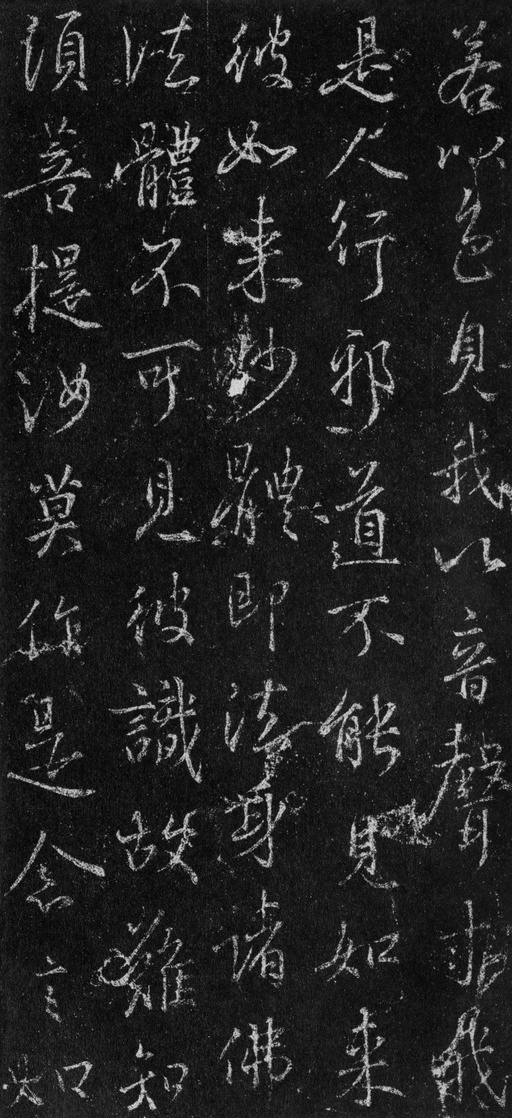 若以色見我以音聲求我
是人行邪道不能見如来
彼如来妙體即法身諸佛
法體不可見彼識故難知
須菩提汝莫作是念言如